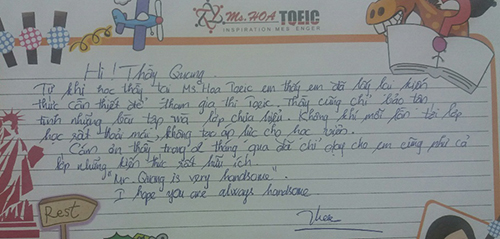 Ms. HOA TOEIC
INSPIRATION MESSENGER
Hi! Thầy Quang.
Từ khi học thầy tại Ms Hoa Toeic em thấy em đã lấy lại kiến
thức cần thiết để tham gia thi Toeic. Thầy cũng chỉ bảo tận
tình những bài tập mà lớp chữa. Không khí mỗi lần tới lớp
học rất thoải mái, không tạo áp lực cho học viên.
Cảm ơn thầy trong 2 tháng qua đã chỉ dạy cho em cũng như cả
lớp những kiến thức rất hữu ích.
"Mr. Quang is very handsome".
I hope you are always handsome
Rest